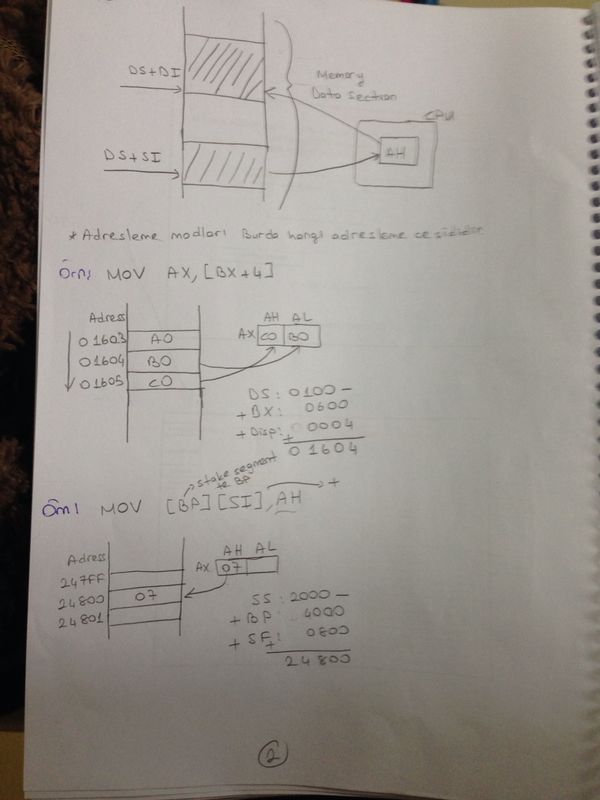 DS+DI
Memory
Data section
CPU
AH
DS+SI
*Adresleme modları Burda hangi adresleme çeşididir
Örn1 MOV AX, [BX+4]
Adress
01603 A0
01604 B0
01605 C0
AH AL
AX C0 B0
DS: 0100-
+ BX: 0600
+ Disp: 0004
+
01604
stake segment
te BP
Örn1 MOV [BP][SI], AH +
Adress
247FF
24800 07
24801
AH AL
AX 07
SS: 2000-
+ BP: 4000
+ SF: 0800
+
24800
2